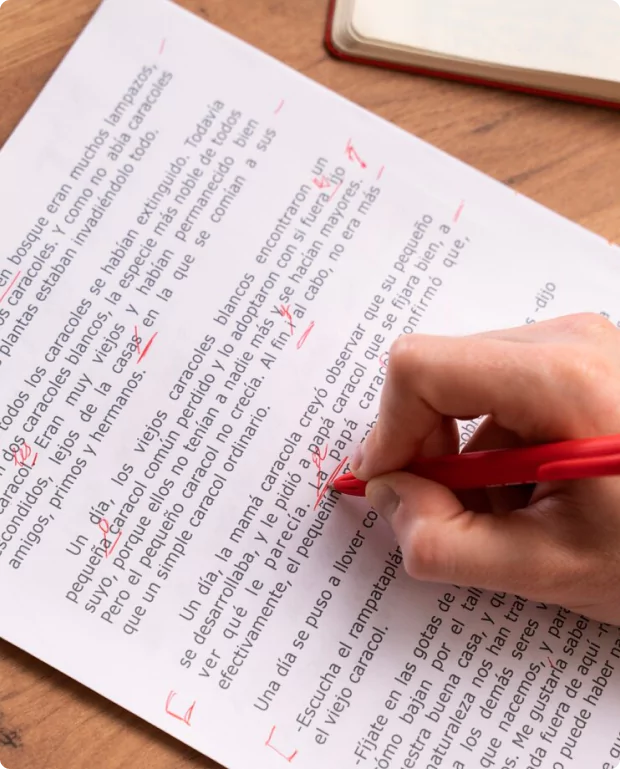 en bosque eran muchos lampazos,
caracoles. Y como no abia caracoles
plantas estaban invadiéndolo todo.
todos los caracoles se habían extinguido. Todavia
caracoles blancos, la especie más noble de todos
Eran muy viejos y habían permanecido bien
lejos de la casas en la que se comían a sus
amigos, primos y hermanos.
Un día, los viejos caracoles blancos encontraron un
pequeña caracol común perdido y lo adoptaron con si fuera
suyo, porque ellos no tenían a nadie más y se hacían mayores.
Pero el pequeño caracol no crecía. Al fin al cabo, no era más
que un simple caracol ordinario.
Un día, la mamá caracola creyó observar que su pequeño
se desarrollaba, y le pidió a papá caracol que se fijara bien, a
ver qué le parecía. La papá confirmó que,
efectivamente, el
Una día se puso a llover
-Escucha el rampataplán
el viejo caracol.
dijo
-Fíjate en las gotas de
bajan por el
buena casa, y
naturaleza nos han
a los demás seres
que nacemos, y
Me gustaría saber
fuera de aquí
puede haber